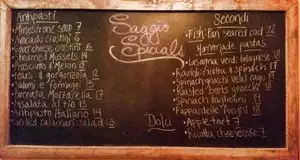 Antipasti
Minestrone soup 7
Avocado crostini 6
Goat cheese crostini
Steamed Mussels 14
Prosciutto & Melon 12
Pears & gorgonzola
Salumi e Formaggi 15
Burrata Mozzarella 17
Insalata al
Antipasto Italiano 14
Grilled calamari salad 13
Saggio
Specials
Dolci
Secondi
Fish-Pan seared cod 22
Homemade pastas
Lasagna verdi bolognese 18
Ravioli ricotta & spinach
Spinach gnocchi veal ragu
Roasted beets gnocchi 18
Spinach tagliolini
Pappardelle funghi 18
Apple tart 7
Ricotta cheesecake 7